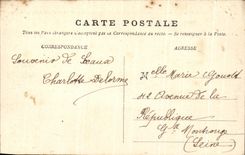 CARTE POSTALE
Tous les Pays étrangers n'acceptent pas la Correspondance au recto. — Se renseigner à la Poste.
CORRESPONDANCE
ADRESSE
Souvenir de Sceaux
Charlotte Delorme
Melle Maria
42 Avenue de la
République
Gd Montrouge
(Seine)